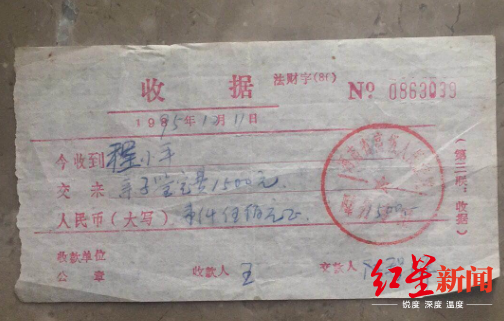 收据 法财字(81)
№ 0863039
1995年12月11日
今收到 程小平
交来 亲子鉴定费1500元.
人民币(大写) 壹仟伍佰元正
收款单位
公 章 收款人 王 交款人
(第二联:收据)
1500
红星新闻
锐度 深度 温度